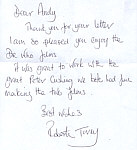 Dear Andy
Thank you for your letter
I am so pleased you enjoy the
Dr Who films
it was great to work with the
great Peter Cushing we both had fun
making the two films.
Best wishes
Roberta Tovey